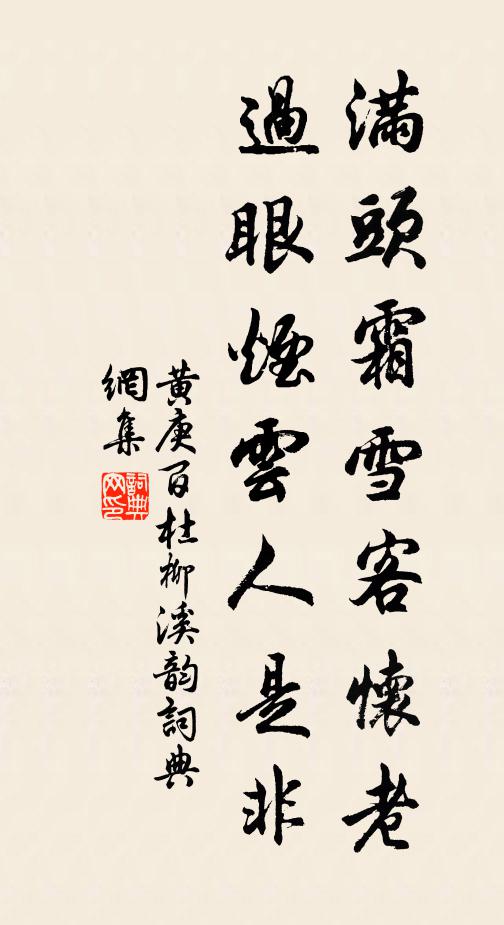 滿頭霜雪客懷老
過眼煙雲人是非
黃庚百杜柳溪韵詞典
網集
詞典网印